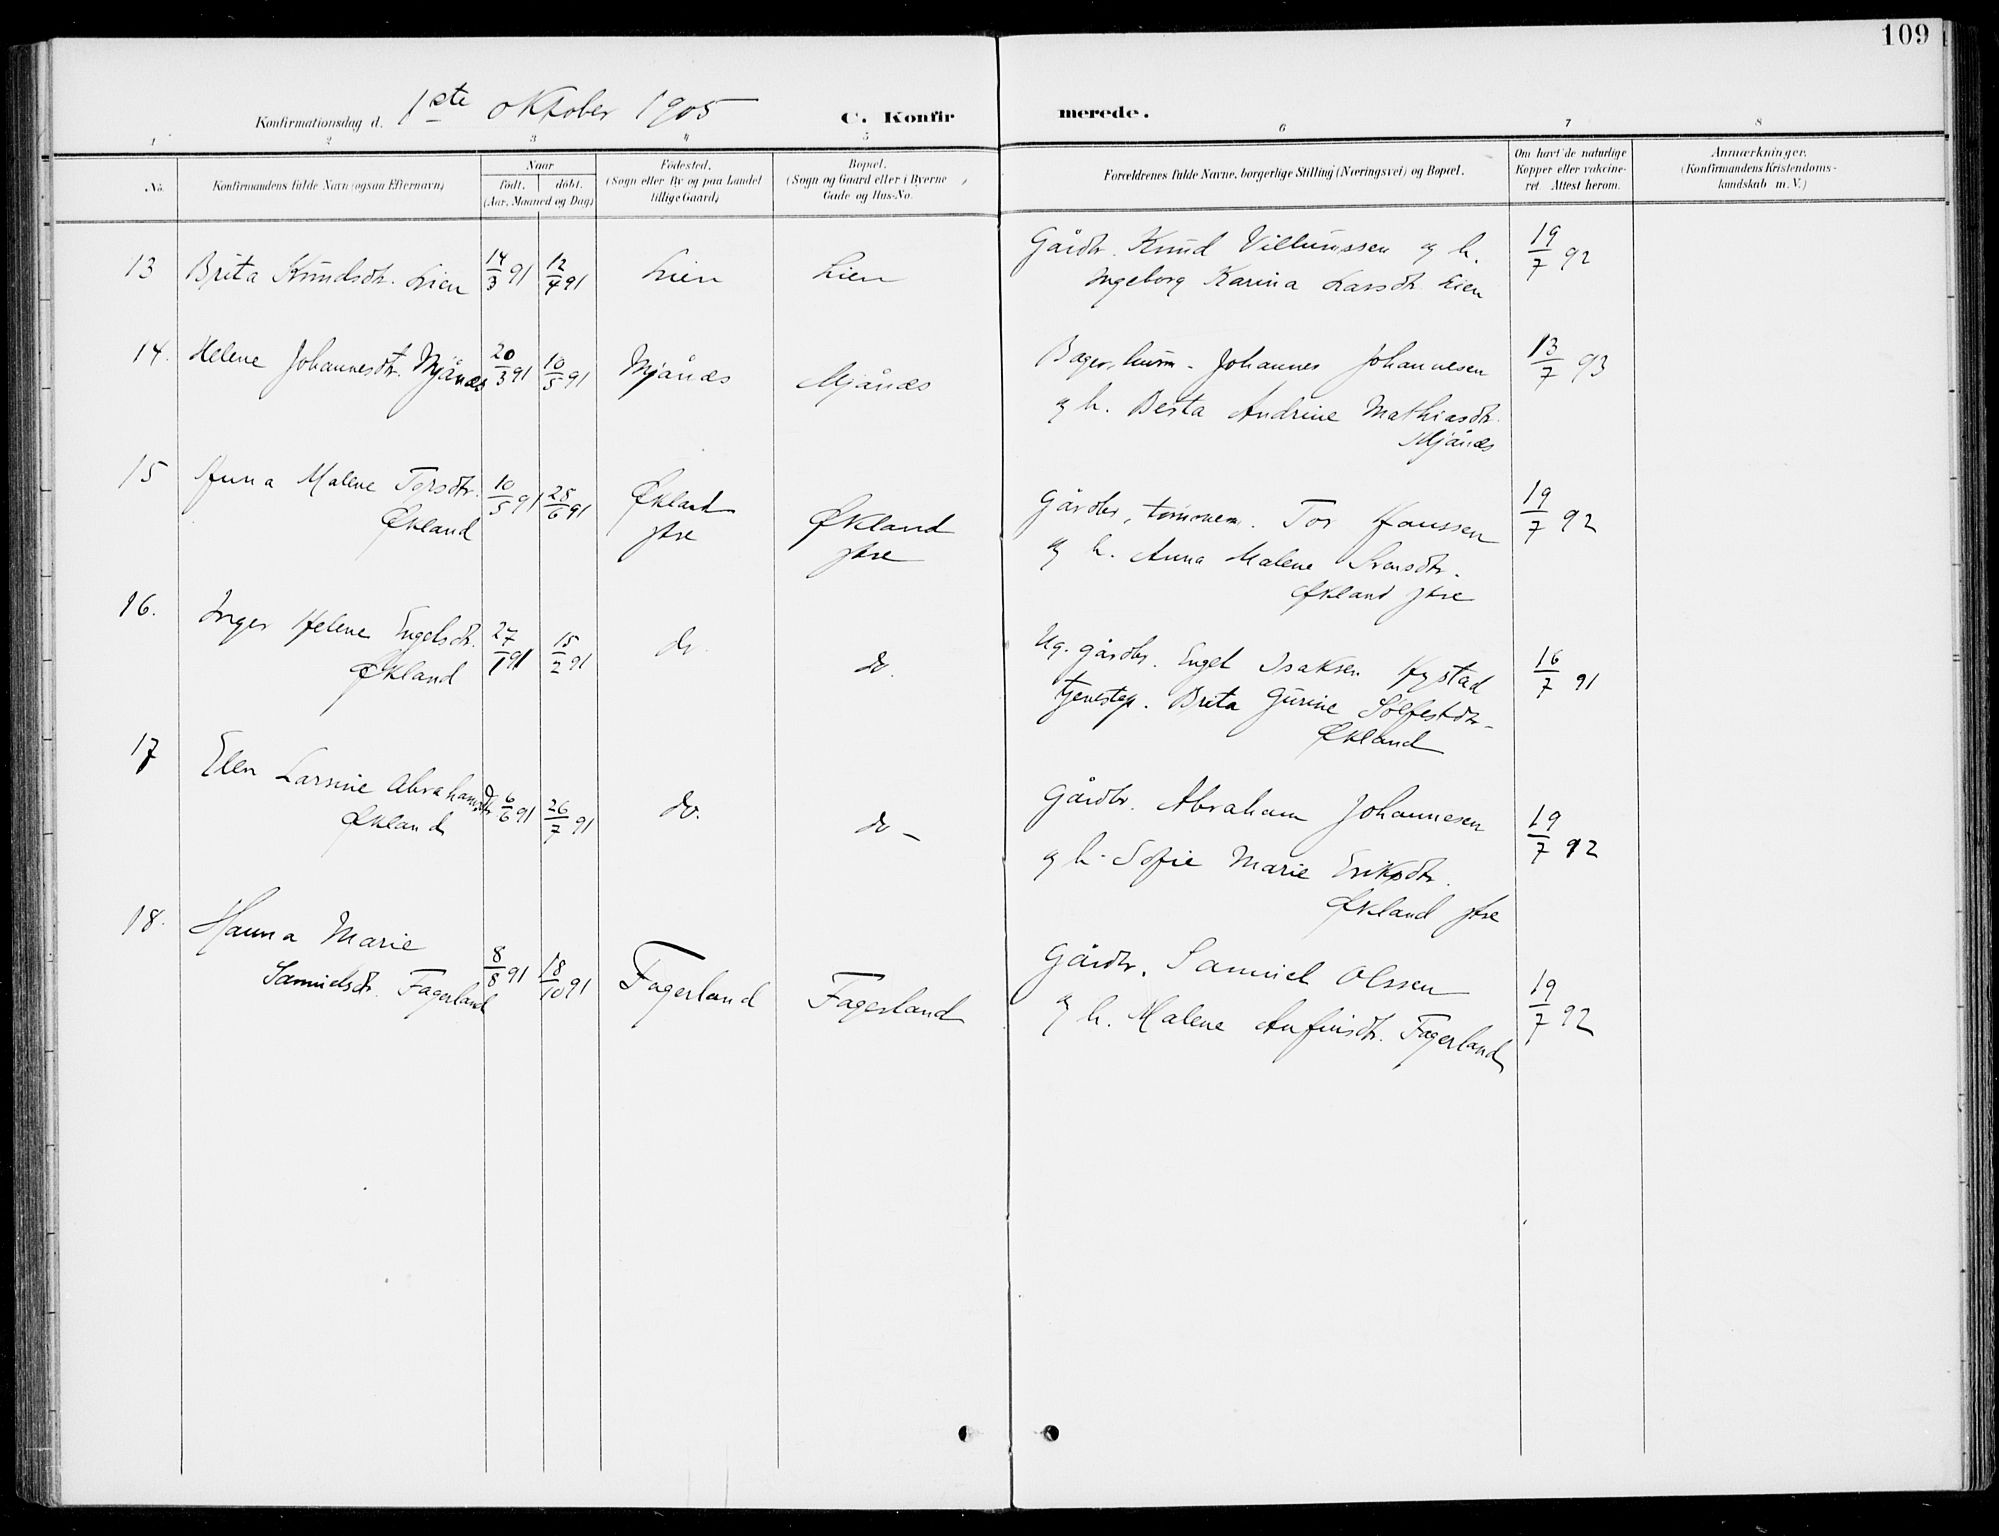 109
Konfirmationsdag d. 1ste oktober 1905 C. Konfirmerede.
1 2 3 4 5 6 7 8
No. Konfirmandens fulde Navn (ogsaa Efternavn) Naar født. døbt. (Aar, Maaned og Dag) Fødested. (Sogn eller By og paa Landet tillige Gaard) Bopæl. (Sogn og Gaard eller i Byerne Gade og Hus-No. Forældrenes fulde Navne, borgerlige Stilling (Næringsvei) og Bopæl. Om havt de naturlige Kopper eller vakcineret. Attest herom. Anmærkninger. (Konfirmandens Kristendomskundskab m. V.)
13 Brita Knudsdtr. Lien 14/3 91 12/4 91 Lien Lien Gårdbr. Knud Villumssen og h. 19/7 92
Ingeborg Karina Larsdtr. Lien
14. Helene Johannesdtr. Mjånes 20/3 91 10/5 91 Mjånæs Mjånæs Bager, husm. Johannes Johannesen 13/7 93
og h. Berta Andrine Mathiasdtr.
Mjånæs
15 Anna Malene Torsdtr. 10/5 91 28/6 91 Økland Økland Gårdbr, Tor Hanssen 19/7 92
Økland ytre ytre og h. Anna Malene Svensdtr.
Økland ytre
16. Inger Helene Engelsdtr. 27/1 91 15/2 91 do. do. Ug. gårdbr. Engel Isaksen Hystad 16/7 91
Økland tjenestep. Brita Gurine Sølfestdtr.
Økland
17 Elen Larsine Abrahamsdtr 6/6 91 26/7 91 do. do. Gårdbr. Abraham Johannesen 19/7 92
Økland og h. Sofie Marie Eriksdtr.
Økland ytre
18. Hanna Marie 8/8 91 18/10 91 Fagerland Fagerland Gårdbr. Samuel Olssen 19/7 92
Samuelsdtr. Fagerland og h. Malene Anfinsdtr. Fagerland